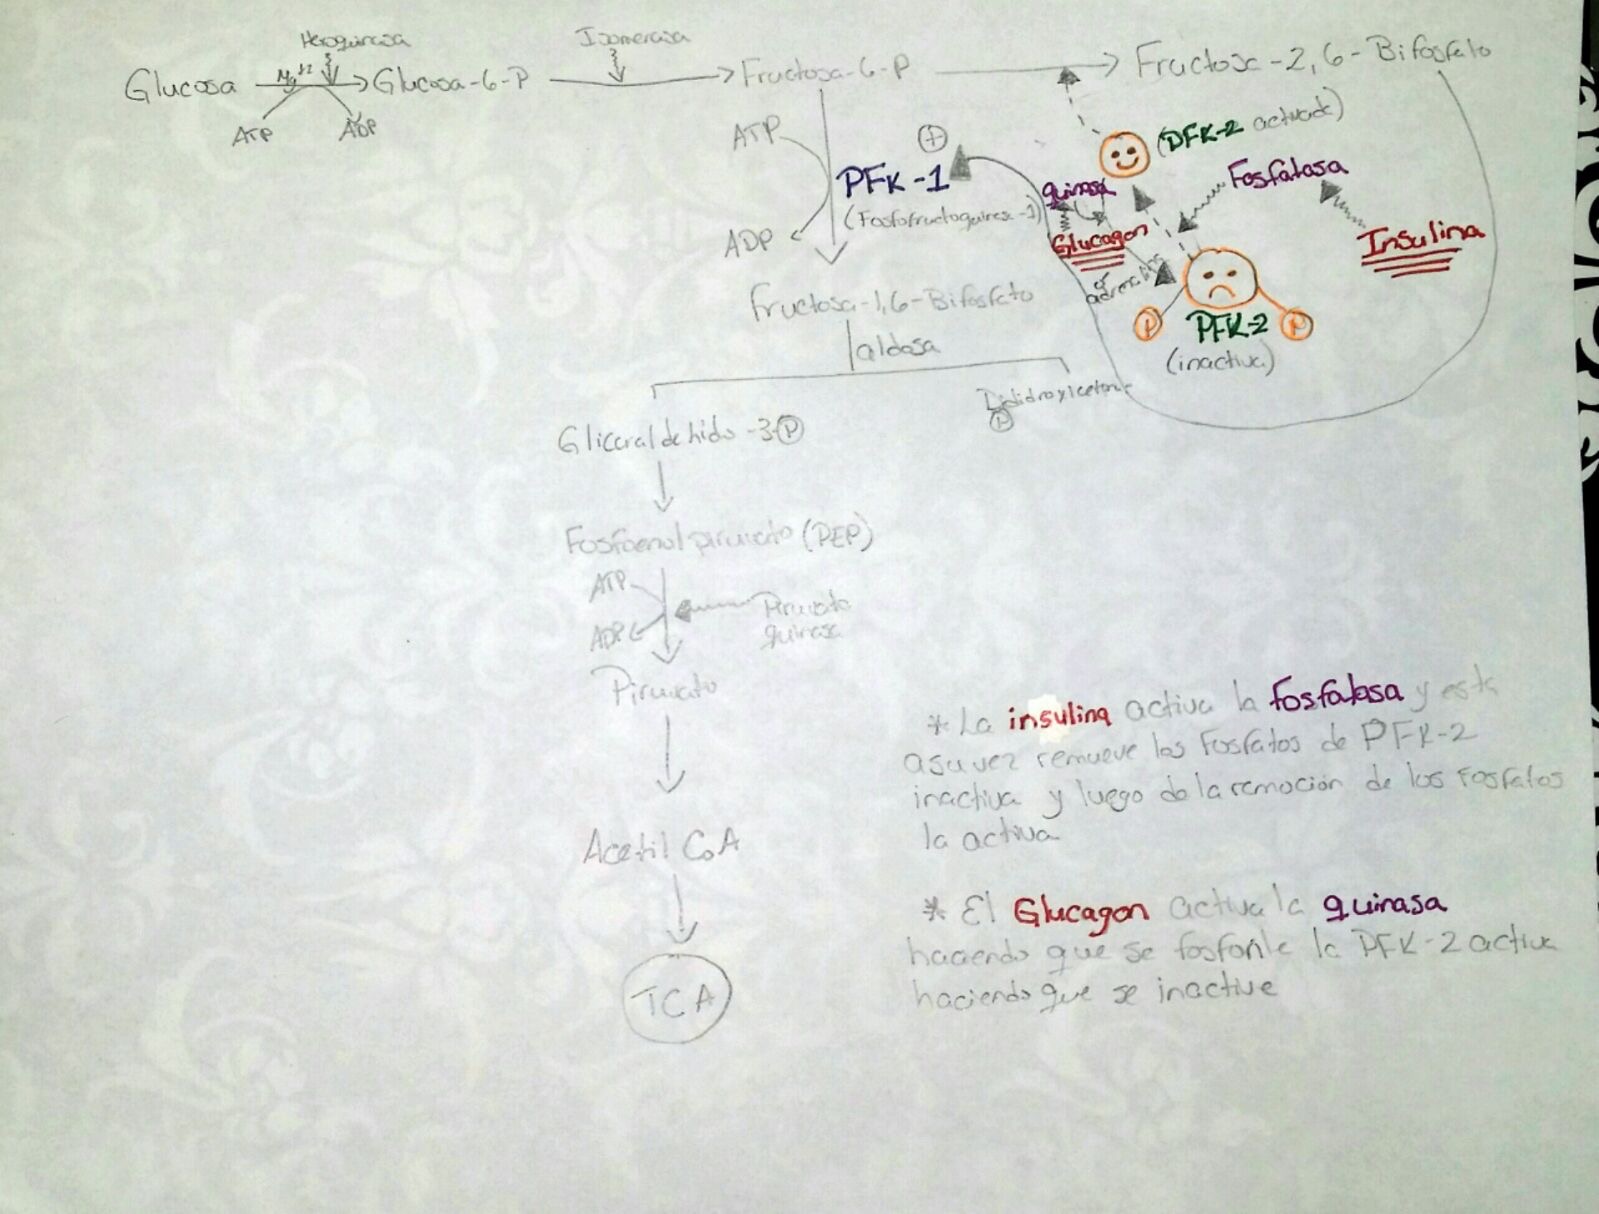 Hexoquinasa
Isomerasa
Glucosa
Mg+2
Glucosa-6-P
Fructosa-6-P
Fructosa-2,6-Bifosfato
ATP
ADP
ATP
PFK-1
(Fosfofructoquinasa-1)
ADP
+
(PFK-2 activada)
quinasa
Fosfatasa
Glucagon
Insulina
P
PFK-2
P
(inactiva)
Fructosa-1,6-Bifosfato
aldosa
Gliceraldehido-3-P
P
Fosfoenolpiruvato (PEP)
ATP
ADP
Piruvato
quinasa
Piruvato
Acetil CoA
TCA
* La insulina activa la fosfatasa y esta
asuvez remueve los fosfatos de PFK-2
inactiva y luego de la remoción de los fosfatos
la activa
* El Glucagon activa la quinasa
haciendo que se fosforile la PFK-2 activa
haciendo que se inactive